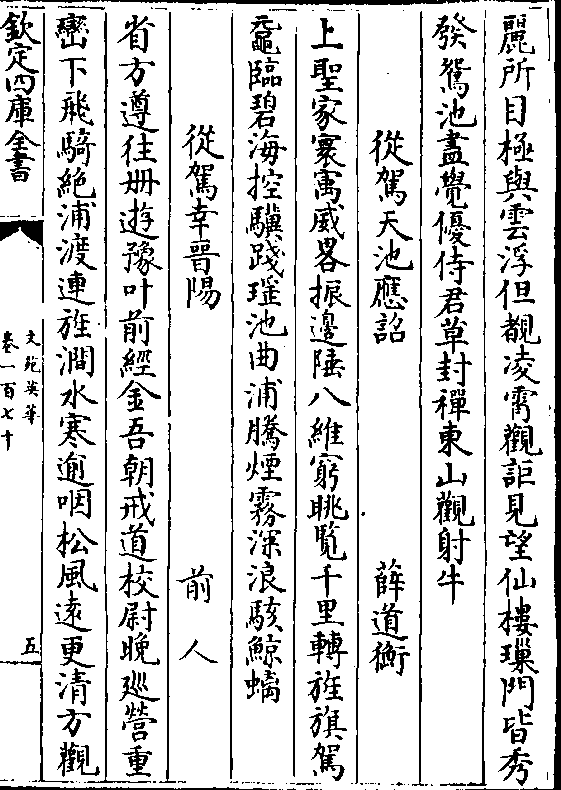 麗所目極與雲浮但覩凌霄觀詎見望仙樓璅門皆秀
發鴛池盡覺優侍君草封禪東山觀射牛
從駕天池應詔 薛道衡
上聖家寰寓威畧振邊陲八維窮眺覧千里轉旌旗駕
黿臨碧海控驥踐瑶池曲浦騰煙霧深浪駭鯨螭
從駕幸晉陽 前人
省方遵往册遊豫叶前經金吾朝戒道校尉晚廵營重
巒下飛騎絶浦渡連旌澗水寒逾咽松風遠更清方觀
欽定四庫全書
文苑英華
卷一百七十
五